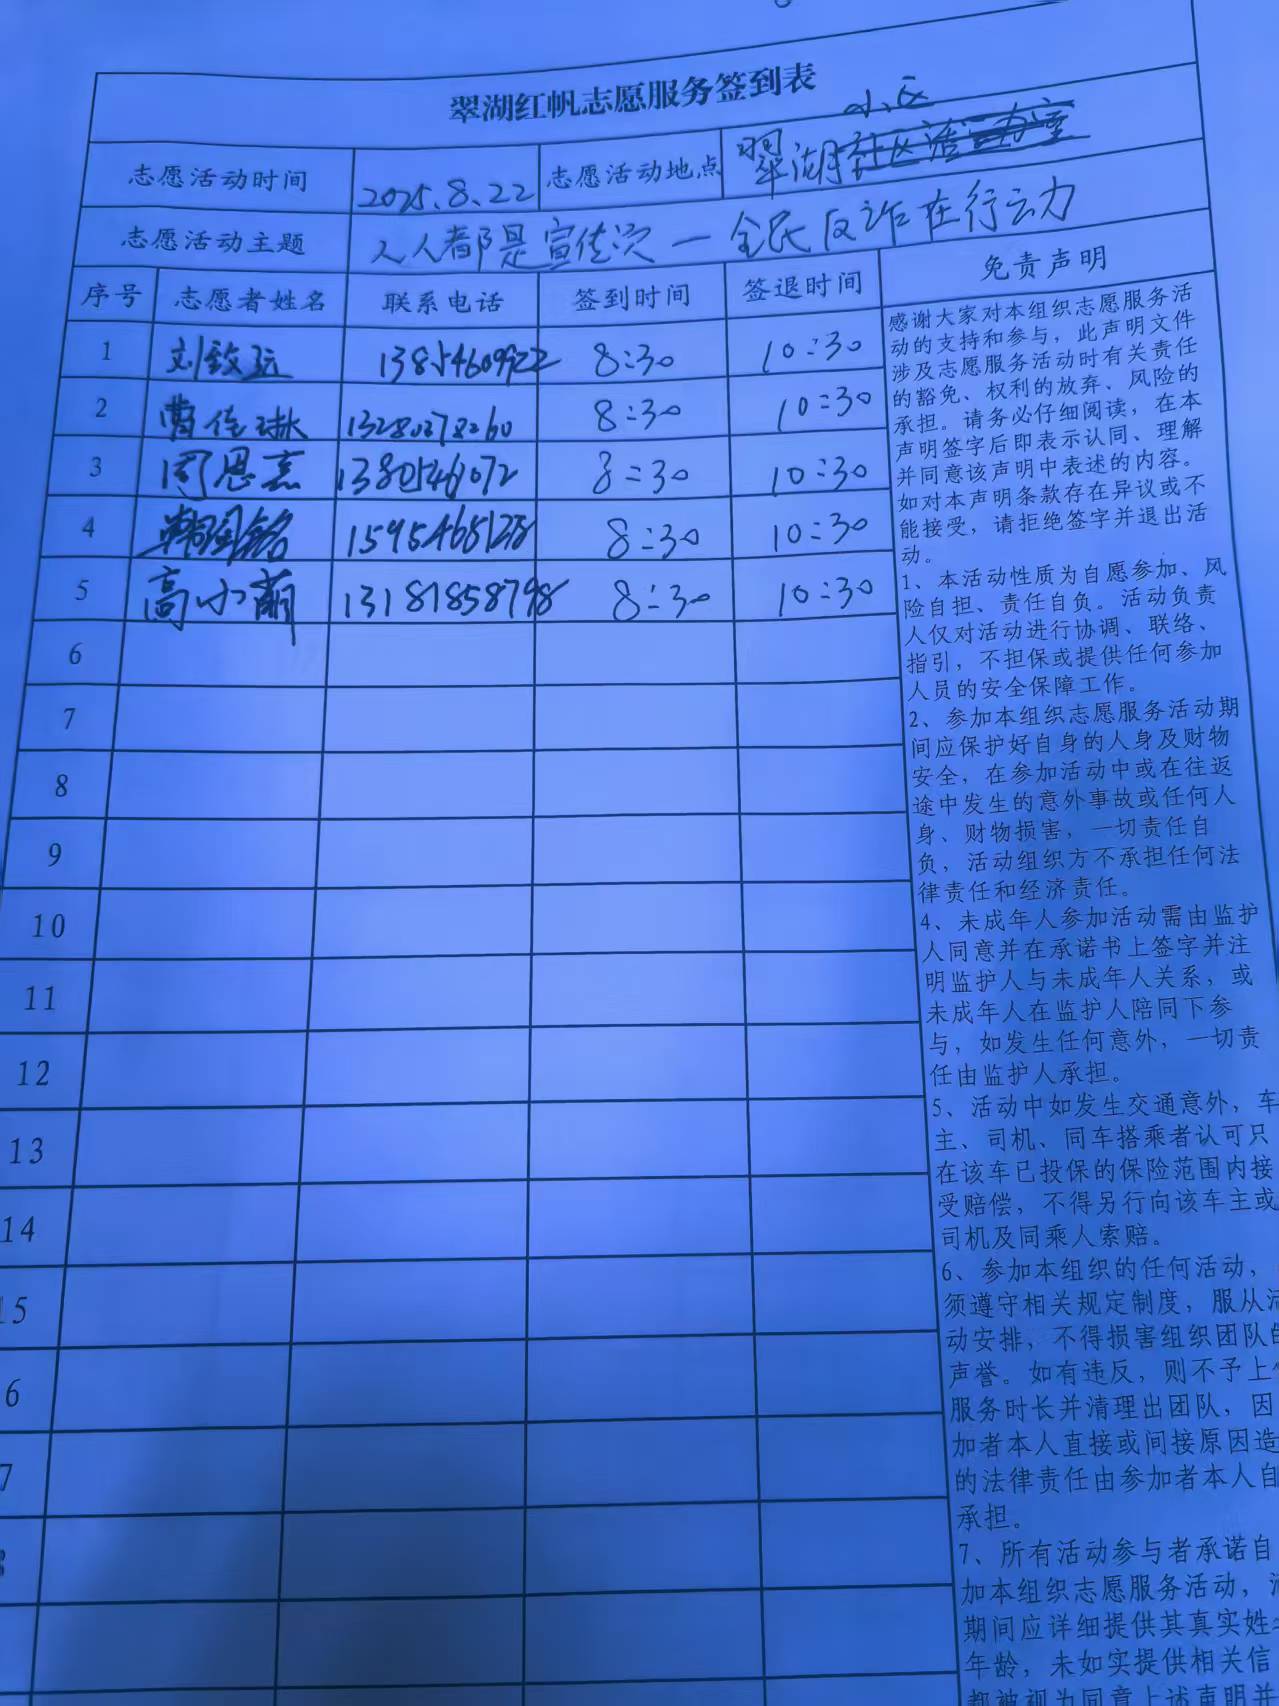 翠湖红帆志愿服务签到表
志愿活动时间 2025.8.22 志愿活动地点 翠湖小区
志愿活动主题 人人都是宣传员—全民反诈在行动
序号 志愿者姓名 联系电话 签到时间 签退时间 免责声明
1 8:30 10:30
2 8:30 10:30
3 8:30 10:30
4 8:30 10:30
5 高小萌 13181858798 8:30 10:30
6
7
8
9
10
11
12
13
14
15
6
7
感谢大家对本组织志愿服务活
动的支持和参与，此声明文件
涉及志愿服务活动时有关责任
的豁免、权利的放弃、风险的
承担。请务必仔细阅读，在本
声明签字后即表示认同、理解
并同意该声明中表述的内容。
如对本声明条款存在异议或不
能接受，请拒绝签字并退出活
动。
1、本活动性质为自愿参加、风
险自担、责任自负。活动负责
人仅对活动进行协调、联络、
指引，不担保或提供任何参加
人员的安全保障工作。
2、参加本组织志愿服务活动期
间应保护好自身的人身及财物
安全，在参加活动中或在往返
途中发生的意外事故或任何人
身、财物损害，一切责任自
负，活动组织方不承担任何法
律责任和经济责任。
4、未成年人参加活动需由监护
人同意并在承诺书上签字并注
明监护人与未成年人关系，或
未成年人在监护人陪同下参
与，如发生任何意外，一切责
任由监护人承担。
5、活动中如发生交通意外，车
主、司机、同车搭乘者认可只
在该车已投保的保险范围内接
受赔偿，不得另行向该车主或
司机及同乘人索赔。
6、参加本组织的任何活动，
须遵守相关规定制度，服从活
动安排，不得损害组织团队的
声誉。如有违反，则不予上
服务时长并清理出团队，因
加者本人直接或间接原因造
的法律责任由参加者本人自
承担。
7、所有活动参与者承诺自
加本组织志愿服务活动，
期间应详细提供其真实姓
年龄，未如实提供相关信
都被视为同意上述声明并